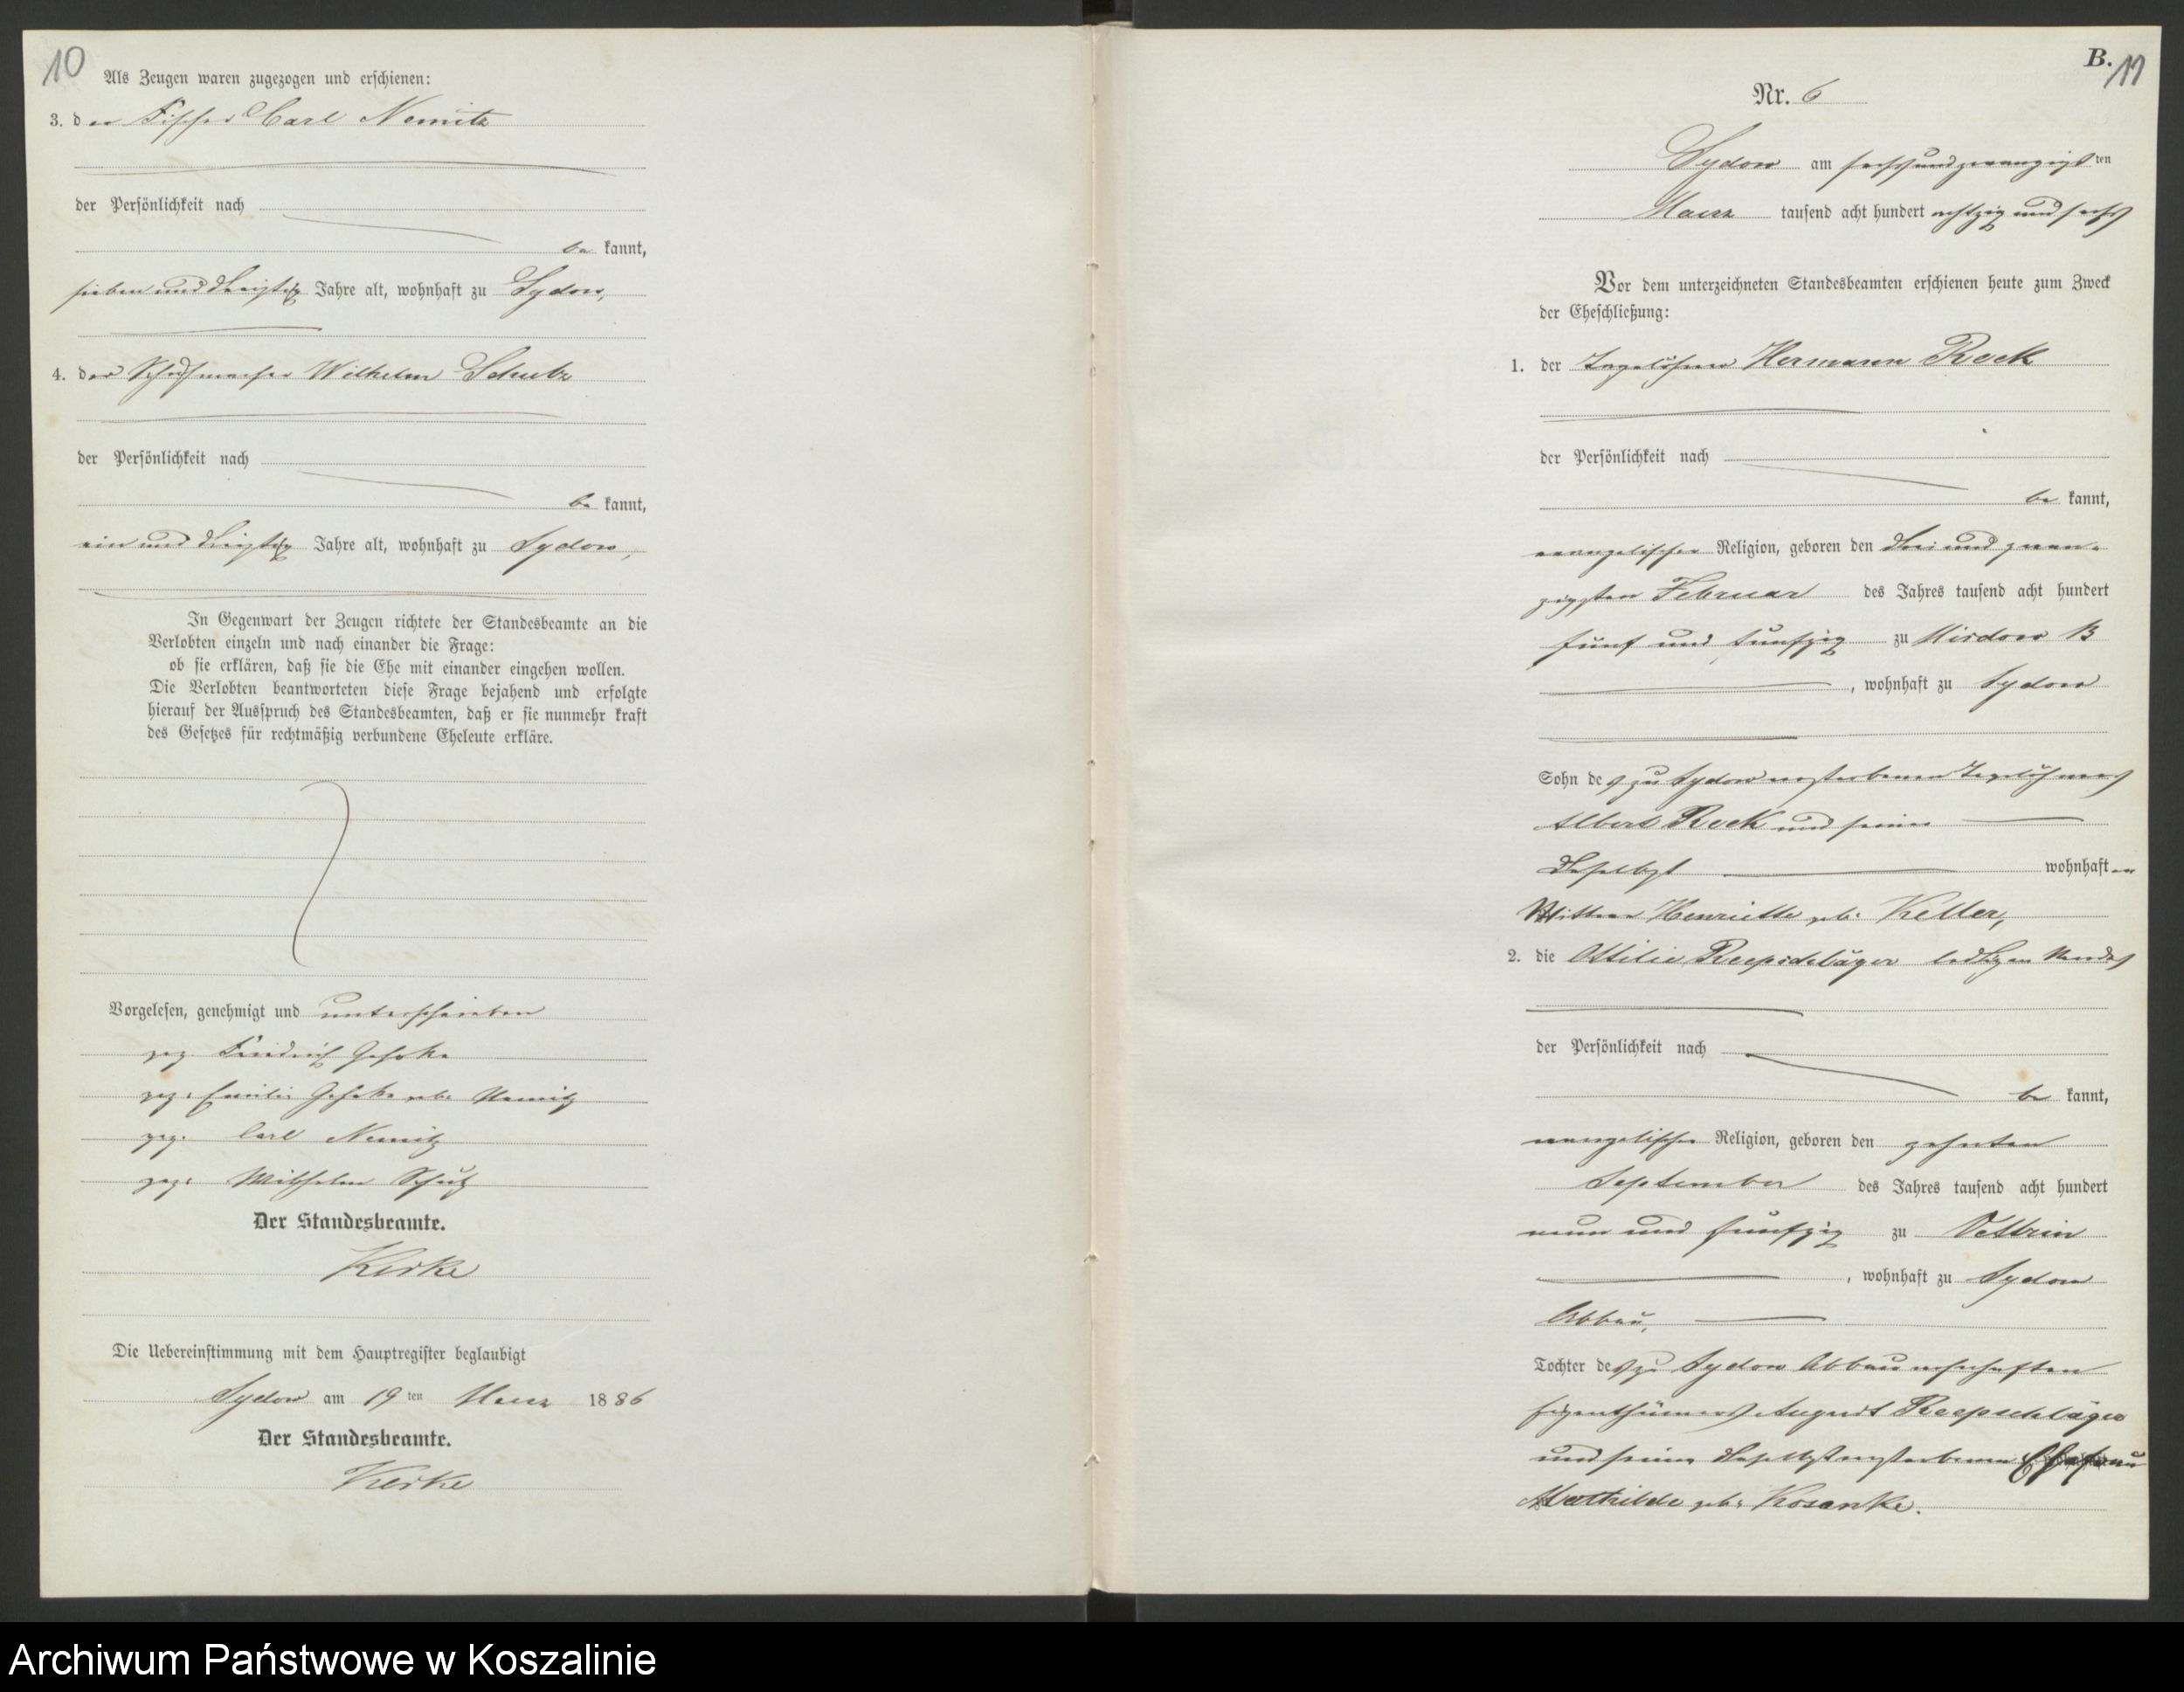 10
Als Zeugen waren zugezogen und erschienen:
3. der Fischer Carl Nemitz
der Persönlichkeit nach
be kannt,
sieben und dreißig Jahre alt, wohnhaft zu Sydow,
4. der Schuhmacher Wilhelm Schulz
der Persönlichkeit nach
be kannt,
ein und dreißig Jahre alt, wohnhaft zu Sydow,
In Gegenwart der Zeugen richtete der Standesbeamte an die
Verlobten einzeln und nach einander die Frage:
ob sie erklären, daß sie die Ehe mit einander eingehen wollen.
Die Verlobten beantworteten diese Frage bejahend und erfolgte
hierauf der Ausspruch des Standesbeamten, daß er sie nunmehr kraft
des Gesetzes für rechtmäßig verbundene Eheleute erkläre.
Vorgelesen, genehmigt und unterschrieben
gez. Friedrich
gez. Emilie geb. Nemitz
gez. Carl Nemitz
gez. Wilhelm Schulz
Der Standesbeamte.
Kerke
Die Uebereinstimmung mit dem Hauptregister beglaubigt
Sydow am 19 ten Maerz 1886
Der Standesbeamte.
Kerke
B.
11
Nr. 6
Sydow am sechsundzwanzigsten
Maerz tausend acht hundert achtzig und sechs
Vor dem unterzeichneten Standesbeamten erschienen heute zum Zweck
der Eheschließung:
1. der Tagelöhner Hermann Reck
der Persönlichkeit nach
be kannt,
evangelischer Religion, geboren den drei und zwan-
zigsten Februar des Jahres tausend acht hundert
fünf und fünfzig zu Wusdow B
, wohnhaft zu Sydow
Sohn des zu Sydow verstorbenen Tagelöhners
Albert Reck und seiner
daselbst wohnhaften
Wittwe Henriette geb. Keller,
2. die Ottilie Reepschläger ledigen Standes
der Persönlichkeit nach
be kannt,
evangelischer Religion, geboren den zehnten
September des Jahres tausend acht hundert
neun und fünfzig zu Vettrin
, wohnhaft zu Sydow
Abbau,
Tochter des zu Sydow Abbau wohnhaften
Eigenthümers August Reepschläger
und seiner daselbst verstorbenen Ehefrau
Mathilde geb. Kosanke.
Archiwum Państwowe w Koszalinie